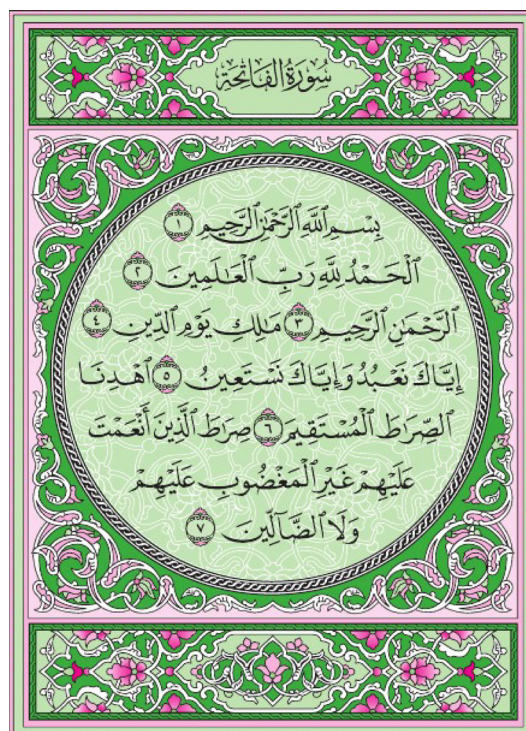 سُورَةُ الفَاتِحَةِ
بِسْمِ ٱللَّهِ ٱلرَّحْمَٰنِ ٱلرَّحِيمِ ١
ٱلْحَمْدُ لِلَّهِ رَبِّ ٱلْعَٰلَمِينَ ٢
ٱلرَّحْمَٰنِ ٱلرَّحِيمِ ٣ مَٰلِكِ يَوْمِ ٱلدِّينِ
إِيَّاكَ نَعْبُدُ وَإِيَّاكَ نَسْتَعِينُ ٥ ٱهْدِنَا
ٱلصِّرَٰطَ ٱلْمُسْتَقِيمَ ٦ صِرَٰطَ ٱلَّذِينَ أَنْعَمْتَ
عَلَيْهِمْ غَيْرِ ٱلْمَغْضُوبِ عَلَيْهِمْ
وَلَا ٱلضَّآلِّينَ ٧